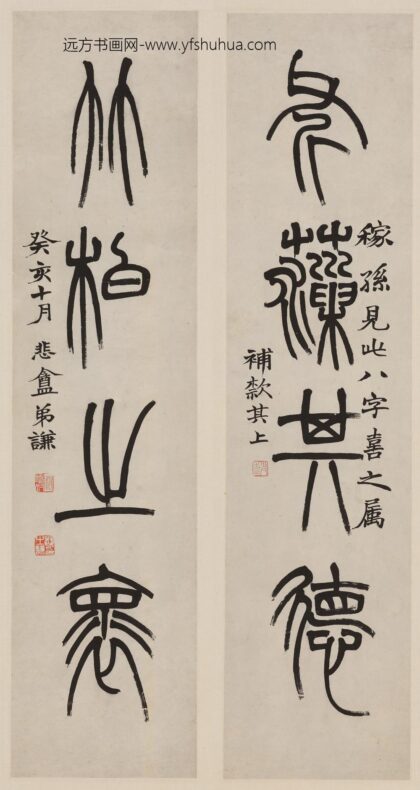 远方书画网-www.yfshuhua.com
其德
稼孫見此八字喜之属
補款其上
竹柏之褱
癸亥十月 悲盦弟謙